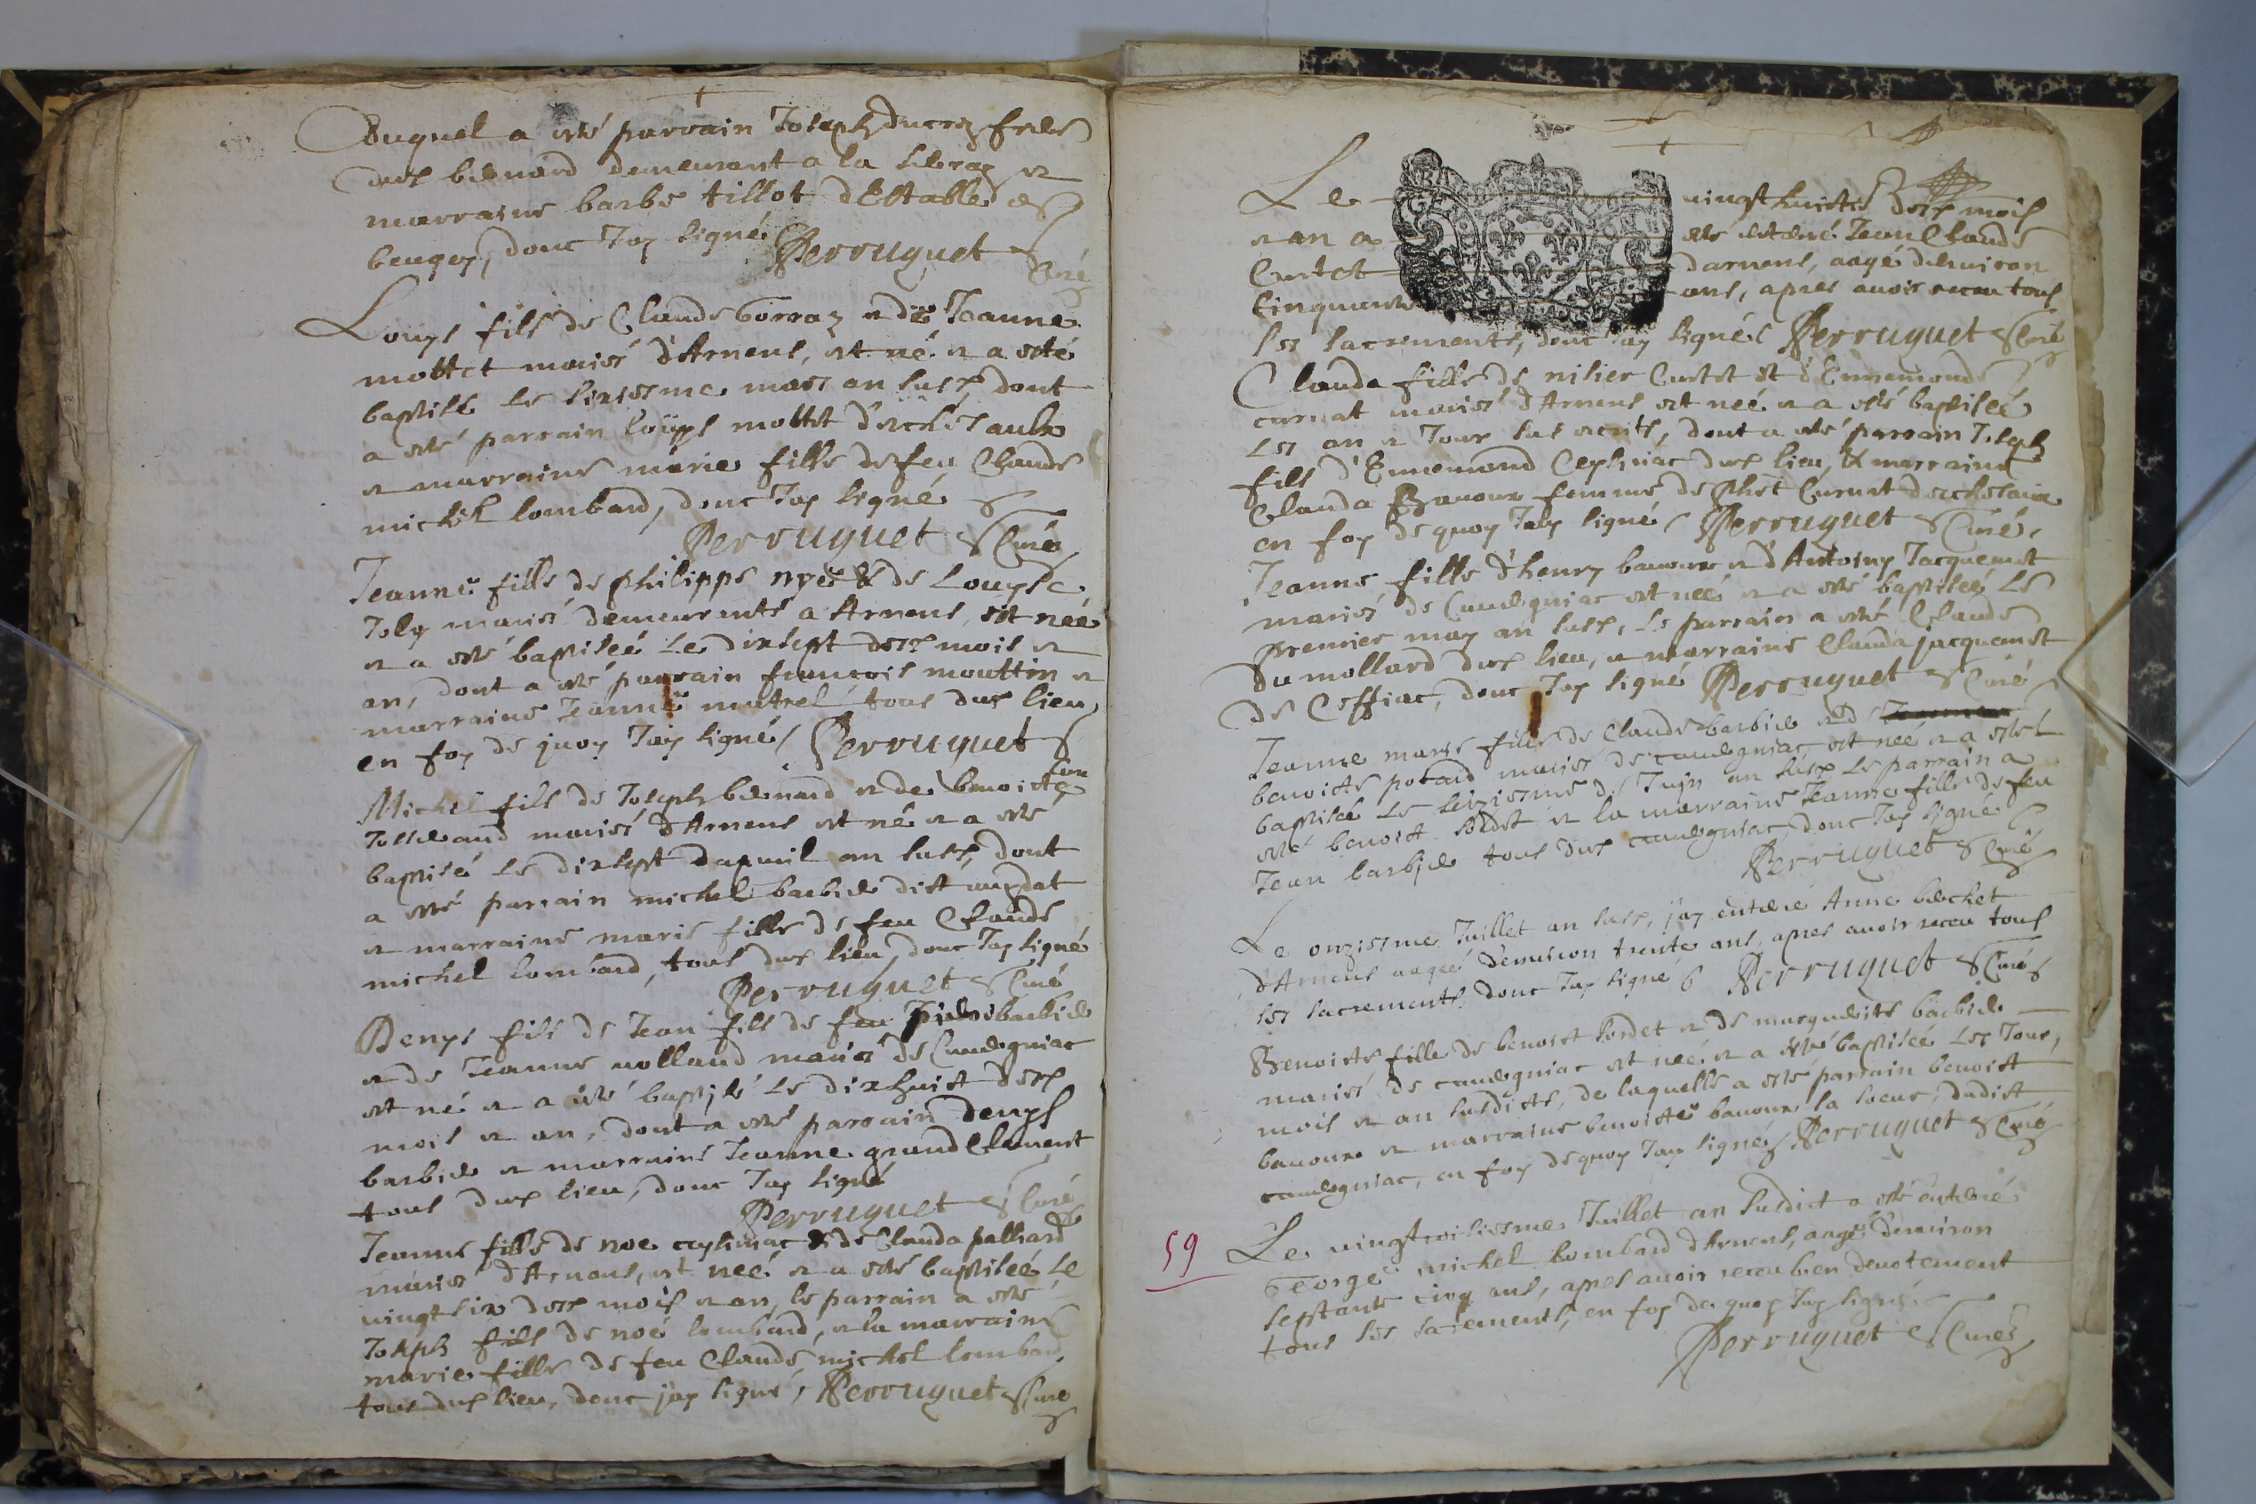 Duquel a esté parrain Joseph ducroz frere
dud bernard demeurant a la
marraine barbe tillot d'Estables
beugey, donc J'ay signé Perruquet Curé
Louys fils de Claude Gorraz et de Jeanne
mottet mariés d'Arnens, est né et a esté
baptisé le sixiesme mars an susd, dont
a esté parrain Louys mottet d'eschesaulx
et marraine marie fille de feu Claude
michel lombard, donc J'ay signé
Perruquet Curé
Jeanne fille de philippe nyer & de Louyse
Joly mariés demeurants a Arnens, est neé
et a esté baptiseé le dixsept desd mois et
an, dont a esté parrain françois mouttin et
marraine Jeanne mutrel tous dud lieu,
en foy de quoy J'ay signé Perruquet
Curé
Michel fils de Joseph bernard et de benoiste
Josserand mariés d'Arnens est né et a esté
baptisé le dixsept d'apvril an susd, dont
a esté parrain michel barbier dict
et marraine marie fille de feu Claude
michel lombard, tous dud lieu, donc J'ay signé
Perruquet Curé
Denys fils de Jean fils de feu Pierre barbier
et de Jeanne volland mariés de Cuvergniac
est né et a esté baptisé le dixhuict desd
mois et an, dont a esté parrain denys
barbier et marraine Jeanne grand Clement
tous dud lieu, donc J'ay signé
Perruquet Curé
Jeanne fille de noe cephiniac & de Clauda palliard
mariés d'Arnens, est neé et a esté baptiseé le
vingt six desd mois et an, le parrain a esté
Joseph fils de noé lombard, et la marraine
marie fille de feu Claude michel lombard
tous dud lieu, donc j'ay signé, Perruquet Curé
Le vingt huictie desd mois
et an a esté enterré Jean Claude
Curtet d'arnens, aagé d'environ
Cinquante ans, apres avoir receu tous
les sacrements, donc J'ay signé Perruquet Curé
Clauda fille de nisier Curtet et d'Ennemonde
curnat mariés d'Arnens est neé et a esté baptiseé
les an et Jour sus escrits, dont a esté parrain Joseph
fils d'Ennemond Cephiniac dud lieu, & marraine
Clauda Bavoux femme de phet Curnat d'eschesaux
en foy de quoy J'ay signé Perruquet Curé,
Jeanne fille d'henry bavoux et d'Antoiny Jacquemet
mariés de Cuvergniac est neé et a esté baptiseé le
premier may an susd, le parrain a esté Claude
Du mollard dud lieu, et marraine Clauda jacquemet
de Ceffiac, donc J'ay signé Perruquet Curé
Jeanne marie fille de Claude barbier et de
benoiste potard mariés de cuvergniac est neé et a esté
baptiseé le seiziesme de Juin an susd le parrain a
esté benoist sordet et la marraine Jeanne fille de feu
Jean barbier tous dud cuvergniac, donc J'ay signé
Perruquet Curé
Le onziesme Juillet an susd, j'ay enterré Anne bechet
d'Arnens aageé d'environ trente ans, apres avoir receu tous
les sacrements, donc J'ay signé Perruquet Curé
Benoiste fille de benoist sordet et de marguerite barbier
mariés de cuvergniac est neé et a esté baptiseé les Jour,
mois et an susdicts, de laquelle a esté parrain benoist
bavoux et marraine benoiste bavoux sa soeur, dudict
cuvergniac, en foy de quoy J'ay signé Perruquet Curé
59
Le vingttroisiesme Juillet an susdict a esté enterré
George michel lombard d'Arnens, aagé d'environ
septante cinq ans, apres avoir receu bien devotement
tous les sacrements, en foy de quoy J'ay signé
Perruquet Curé